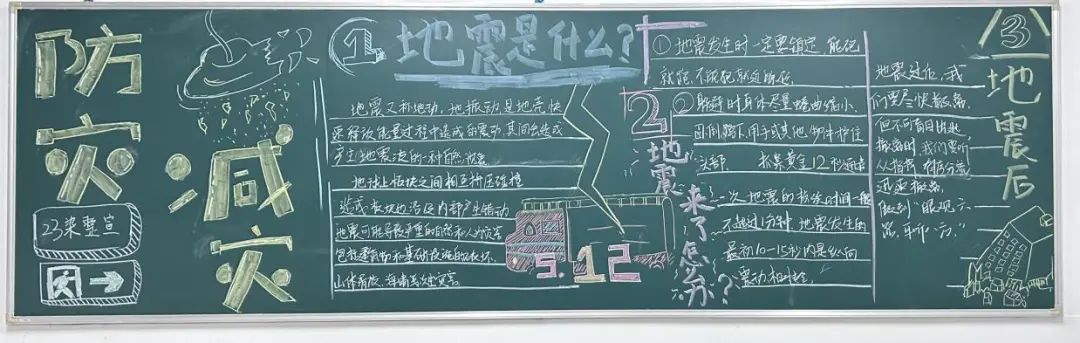 防灾
减灾
23染整宣
① 地震是什么?
地震又称地动、地振动,是地壳快
速释放能量过程中造成的震动,其间会造成
产生地震波的一种自然现象
地球上板块之间相互挤压碰撞
造成板块边沿及内部产生错动
地震可能导致严重的自然和人为灾害
包括建筑物和基础设施的破坏、
山体滑坡、海啸
灾害
5.12
2 地震来了怎么办?
① 地震发生时一定要镇定,能跑
就跑,不能跑就近
② 躲避时身体尽量蜷曲缩小,
用手或其他物件护住
头部
黄金12秒
一次地震的持续时间一般
不超过1分钟,地震发生的
最初10-15秒内是纵向
震动
③ 地震后
地震过后,我
们要尽快撤离,
但不可盲目
撤离时,我们要听
从指挥,有序分流
迅速撤离
做到“眼观六
路,耳听八方。”